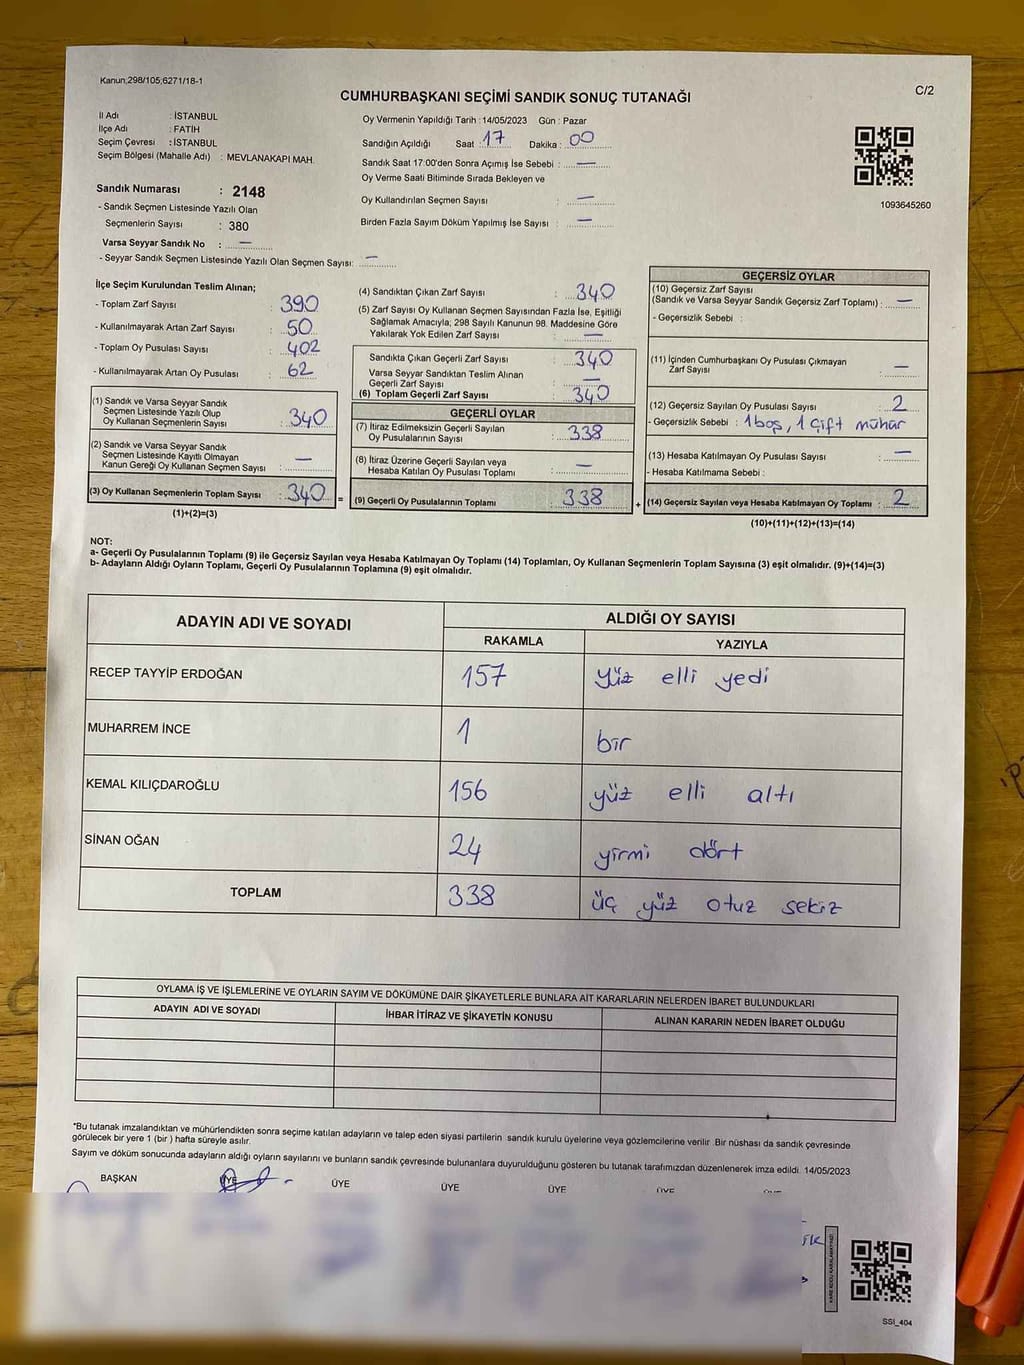 Kanun;298/105;6271/18-1
C/2
CUMHURBAŞKANI SEÇİMİ SANDIK SONUÇ TUTANAĞI
İl Adı : İSTANBUL
İlçe Adı : FATİH
Seçim Çevresi : İSTANBUL
Seçim Bölgesi (Mahalle Adı) : MEVLANAKAPI MAH.
Sandık Numarası : 2148
- Sandık Seçmen Listesinde Yazılı Olan
Seçmenlerin Sayısı : 380
Varsa Seyyar Sandık No : —
- Seyyar Sandık Seçmen Listesinde Yazılı Olan Seçmen Sayısı: —
Oy Vermenin Yapıldığı Tarih : 14/05/2023 Gün : Pazar
Sandığın Açıldığı Saat : 17 Dakika : 00
Sandık Saat 17:00'den Sonra Açımış İse Sebebi : —
Oy Verme Saati Bitiminde Sırada Bekleyen ve
Oy Kullandırılan Seçmen Sayısı : —
Birden Fazla Sayım Döküm Yapılmış İse Sayısı : —
1093645260
İlçe Seçim Kurulundan Teslim Alınan;
- Toplam Zarf Sayısı : 390
- Kullanılmayarak Artan Zarf Sayısı : 50
- Toplam Oy Pusulası Sayısı : 402
- Kullanılmayarak Artan Oy Pusulası : 62
(1) Sandık ve Varsa Seyyar Sandık
Seçmen Listesinde Yazılı Olup
Oy Kullanan Seçmenlerin Sayısı : 340
(2) Sandık ve Varsa Seyyar Sandık
Seçmen Listesinde Kayıtlı Olmayan
Kanun Gereği Oy Kullanan Seçmen Sayısı : —
(3) Oy Kullanan Seçmenlerin Toplam Sayısı : 340 =
(1)+(2)=(3)
(4) Sandıktan Çıkan Zarf Sayısı : 340
(5) Zarf Sayısı Oy Kullanan Seçmen Sayısından Fazla İse, Eşitliği
Sağlamak Amacıyla; 298 Sayılı Kanunun 98. Maddesine Göre
Yakılarak Yok Edilen Zarf Sayısı : —
Sandıkta Çıkan Geçerli Zarf Sayısı : 340
Varsa Seyyar Sandıktan Teslim Alınan
Geçerli Zarf Sayısı : —
(6) Toplam Geçerli Zarf Sayısı : 340
GEÇERLİ OYLAR
(7) İtiraz Edilmeksizin Geçerli Sayılan
Oy Pusulalarının Sayısı : 338
(8) İtiraz Üzerine Geçerli Sayılan veya
Hesaba Katılan Oy Pusulası Toplamı : —
(9) Geçerli Oy Pusulalarının Toplamı : 338 +
GEÇERSİZ OYLAR
(10) Geçersiz Zarf Sayısı
(Sandık ve Varsa Seyyar Sandık Geçersiz Zarf Toplamı) : —
- Geçersizlik Sebebi :
(11) İçinden Cumhurbaşkanı Oy Pusulası Çıkmayan
Zarf Sayısı : —
(12) Geçersiz Sayılan Oy Pusulası Sayısı : 2
- Geçersizlik Sebebi : 1 boş, 1 çift mühür
(13) Hesaba Katılmayan Oy Pusulası Sayısı : —
- Hesaba Katılmama Sebebi :
(14) Geçersiz Sayılan veya Hesaba Katılmayan Oy Toplamı : 2
(10)+(11)+(12)+(13)=(14)
NOT:
a- Geçerli Oy Pusulalarının Toplamı (9) ile Geçersiz Sayılan veya Hesaba Katılmayan Oy Toplamı (14) Toplamları, Oy Kullanan Seçmenlerin Toplam Sayısına (3) eşit olmalıdır. (9)+(14)=(3)
b- Adayların Aldığı Oyların Toplamı, Geçerli Oy Pusulalarının Toplamına (9) eşit olmalıdır.
ADAYIN ADI VE SOYADI
ALDIĞI OY SAYISI
RAKAMLA YAZIYLA
RECEP TAYYİP ERDOĞAN 157 yüz elli yedi
MUHARREM İNCE 1 bir
KEMAL KILIÇDAROĞLU 156 yüz elli altı
SİNAN OĞAN 24 yirmi dört
TOPLAM 338 üç yüz otuz sekiz
OYLAMA İŞ VE İŞLEMLERİNE VE OYLARIN SAYIM VE DÖKÜMÜNE DAİR ŞİKAYETLERLE BUNLARA AİT KARARLARIN NELERDEN İBARET BULUNDUKLARI
ADAYIN ADI VE SOYADI İHBAR İTİRAZ VE ŞİKAYETİN KONUSU ALINAN KARARIN NEDEN İBARET OLDUĞU
*Bu tutanak imzalandıktan ve mühürlendikten sonra seçime katılan adayların ve talep eden siyasi partilerin sandık kurulu üyelerine veya gözlemcilerine verilir. Bir nüshası da sandık çevresinde
görülecek bir yere 1 (bir ) hafta süreyle asılır.
Sayım ve döküm sonucunda adayların aldığı oyların sayılarını ve bunların sandık çevresinde bulunanlara duyurulduğunu gösteren bu tutanak tarafımızdan düzenlenerek imza edildi. 14/05/2023
BAŞKAN ÜYE ÜYE ÜYE ÜYE ÜYE
SSI_404